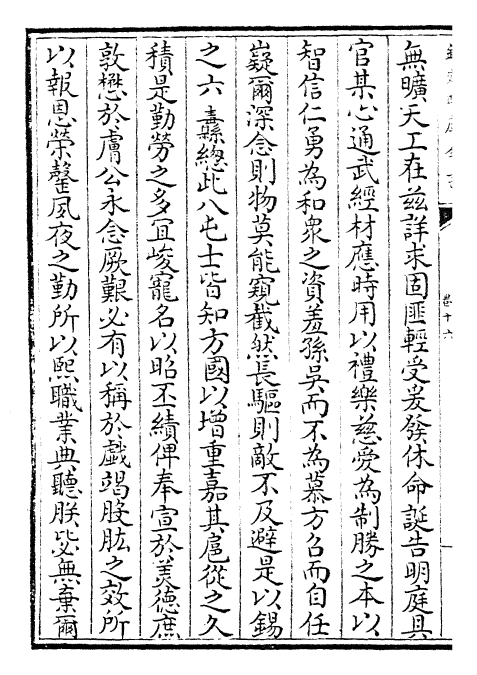 無曠天工在兹詳求固匪輕受爰發休命誕告明庭具
官某心通武經材應時用以禮樂慈愛為制勝之本以
智信仁勇為和衆之資羞孫吳而不為慕方召而自任
嶷爾深念則物莫能窺截然長驅則敵不及避是以錫
之六纛總此八屯士皆知方國以增重嘉其扈從之久
積是勤勞之多宜峻寵名以昭丕績俾奉宣於美德庶
敦懋於膚公永念厥艱必有以稱於戲竭股肱之效所
以報恩榮罄夙夜之勤所以熙職業典聽朕毖無棄爾
卷十六